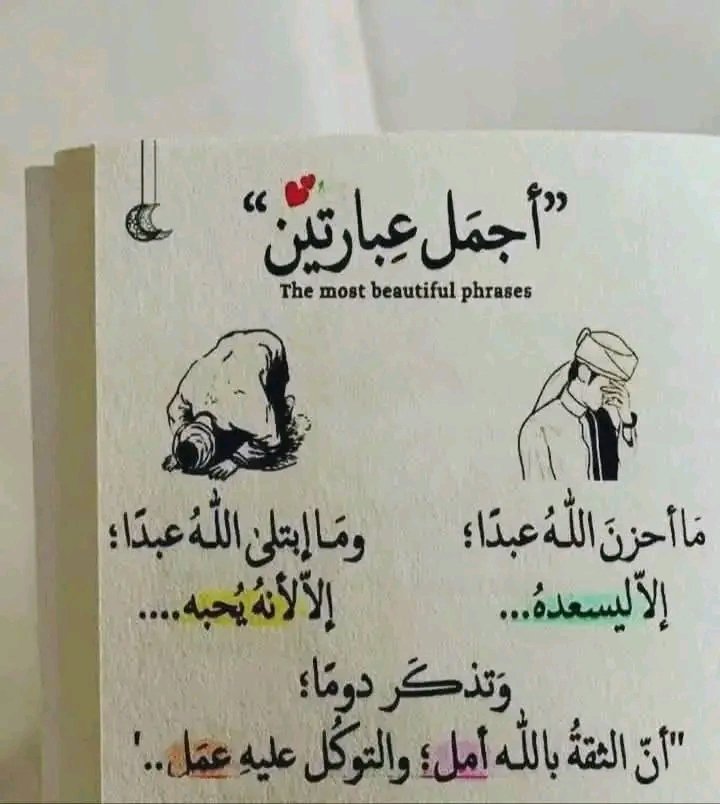 ”أجمَل عِبارتين“
The most beautiful phrases
مَا أحزنَ اللّٰهُ عبدًا؛
إلاّ ليسعدهُ...
ومَا إبتلىٰ اللّٰهُ عبدًا؛
إلاّ لأنهُ يُحبه....
وَتذكَر دومًا؛
"أنّ الثقةُ باللّٰه أمل؛ والتوكُل عليهِ عمَل..'